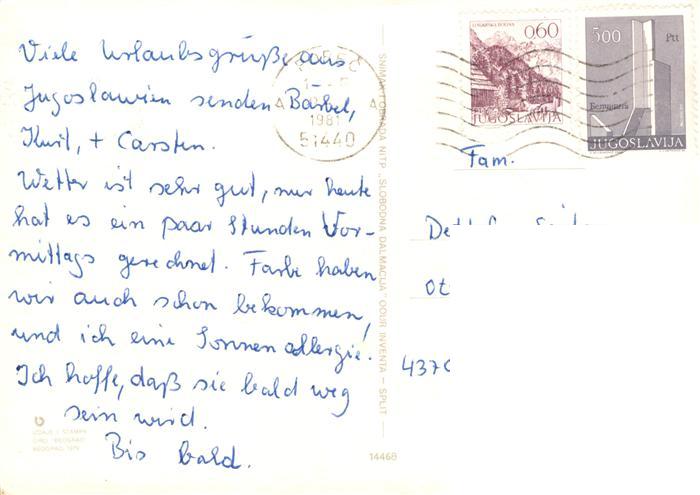 Viele Urlaubsgrüße aus
Jugoslawien senden Bärbel,
Kurt, + Carsten.
Wetter ist sehr gut, nur heute
hat es ein paar Stunden Vor-
mittags gerechnet. Farbe haben
wir auch schon bekommen,
und ich eine Sonnenallergie.
Ich hoffe, daß sie bald weg
sein wird.
Bis bald.
BEOGRAD 1979
14468
SNIMAK I OBRADA NITP „SLOBODNA DALMACIJA" OOUR INVENTA — SPLIT
1981
51440
0.60
JUGOSLAVIJA
500 Ptt
JUGOSLAVIJA
Fam.
437